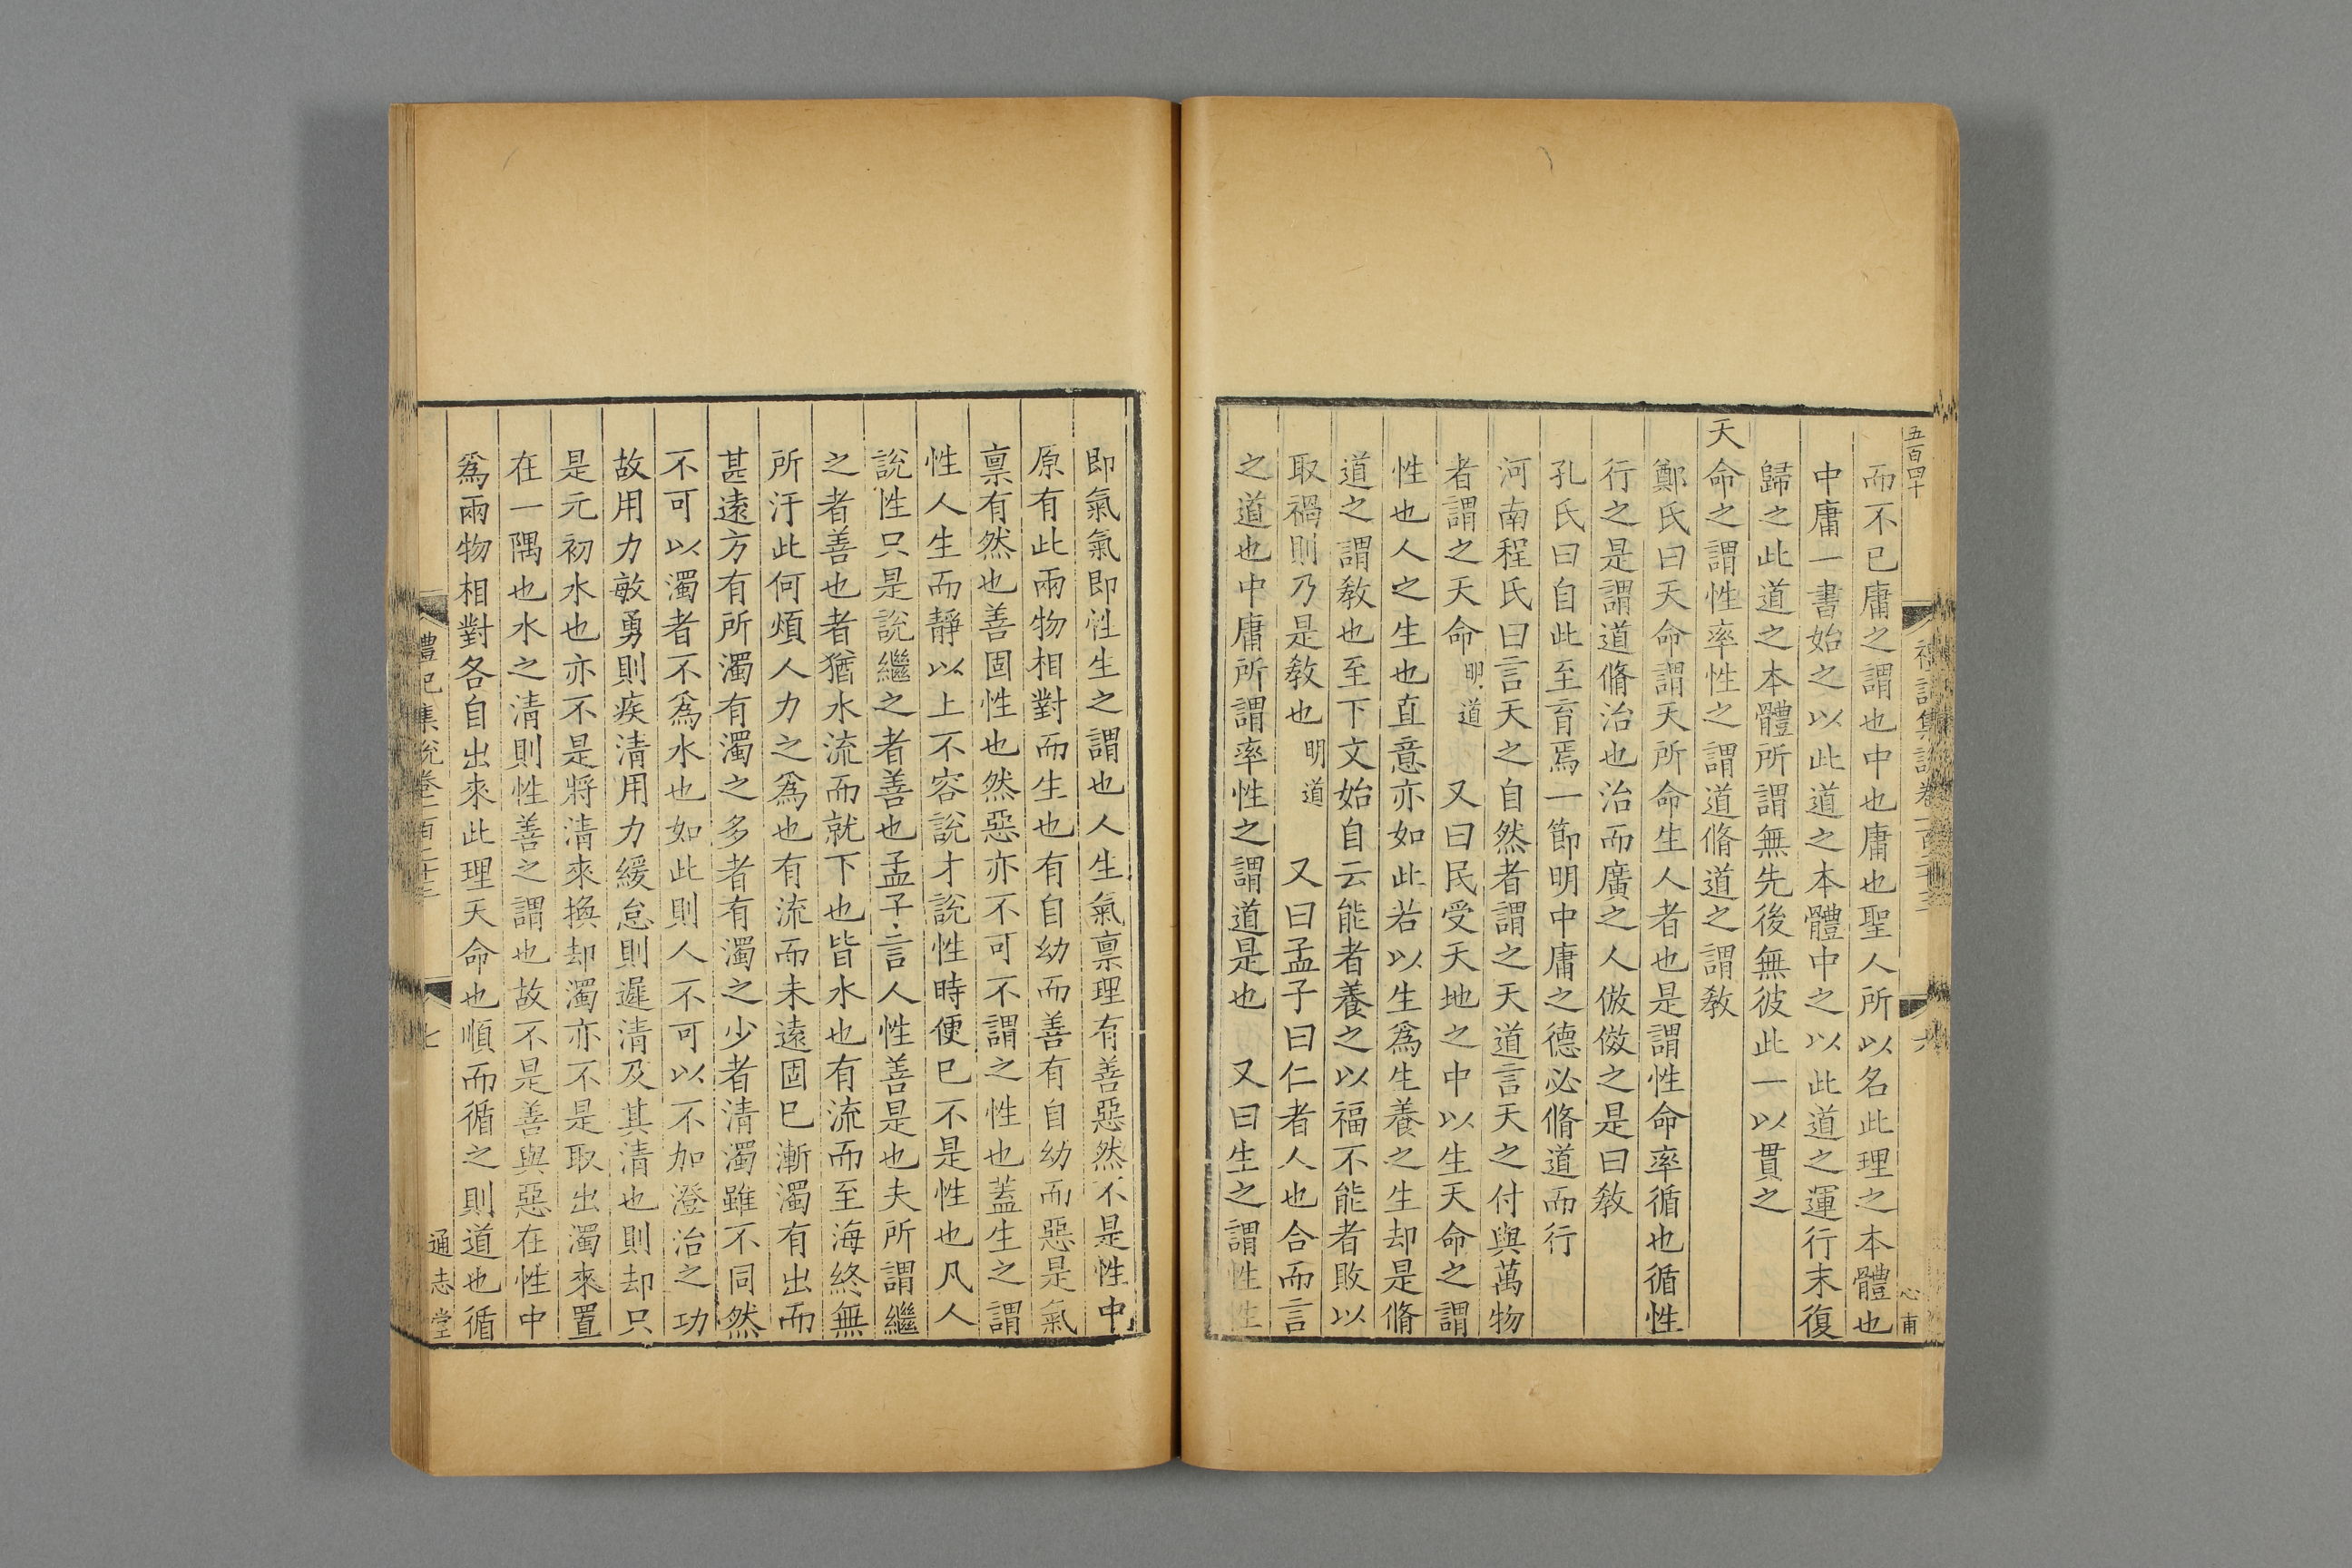 五百四十
而不已庸之謂也中也庸也聖人所以名此理之本體也
中庸一書始之以此道之本體中之以此道之運行末復
歸之此道之本體所謂無先後無彼此一以貫之
天命之謂性率性之謂道脩道之謂教
鄭氏曰天命謂天所命生人者也是謂性命率循也循性
行之是謂道脩治也治而廣之人倣傚之是曰教
孔氏曰自此至育焉一節明中庸之德必脩道而行
河南程氏曰言天之自然者謂之天道言天之付與萬物
者謂之天命明道 又曰民受天地之中以生天命之謂
性也人之生也直意亦如此若以生爲生養之生却是脩
道之謂教也至下文始自云能者養之以福不能者敗以
取禍則乃是教也明道 又曰孟子曰仁者人也合而言
之道也中庸所謂率性之謂道是也 又曰生之謂性性
六
心甫
即氣氣即性生之謂也人生氣禀理有善惡然不是性中
原有此兩物相對而生也有自幼而善有自幼而惡是氣
禀有然也善固性也然惡亦不可不謂之性也蓋生之謂
性人生而靜以上不容說才說性時便已不是性也凡人
說性只是說繼之者善也孟子言人性善是也夫所謂繼
之者善也者猶水流而就下也皆水也有流而至海終無
所汙此何煩人力之爲也有流而未遠固已漸濁有出而
甚遠方有所濁有濁之多者有濁之少者清濁雖不同然
不可以濁者不爲水也如此則人不可以不加澄治之功
故用力敏勇則疾清用力緩怠則遲清及其清也則却只
是元初水也亦不是將清來換却濁亦不是取出濁來置
在一隅也水之清則性善之謂也故不是善與惡在性中
爲兩物相對各自出來此理天命也順而循之則道也循
七
通志堂